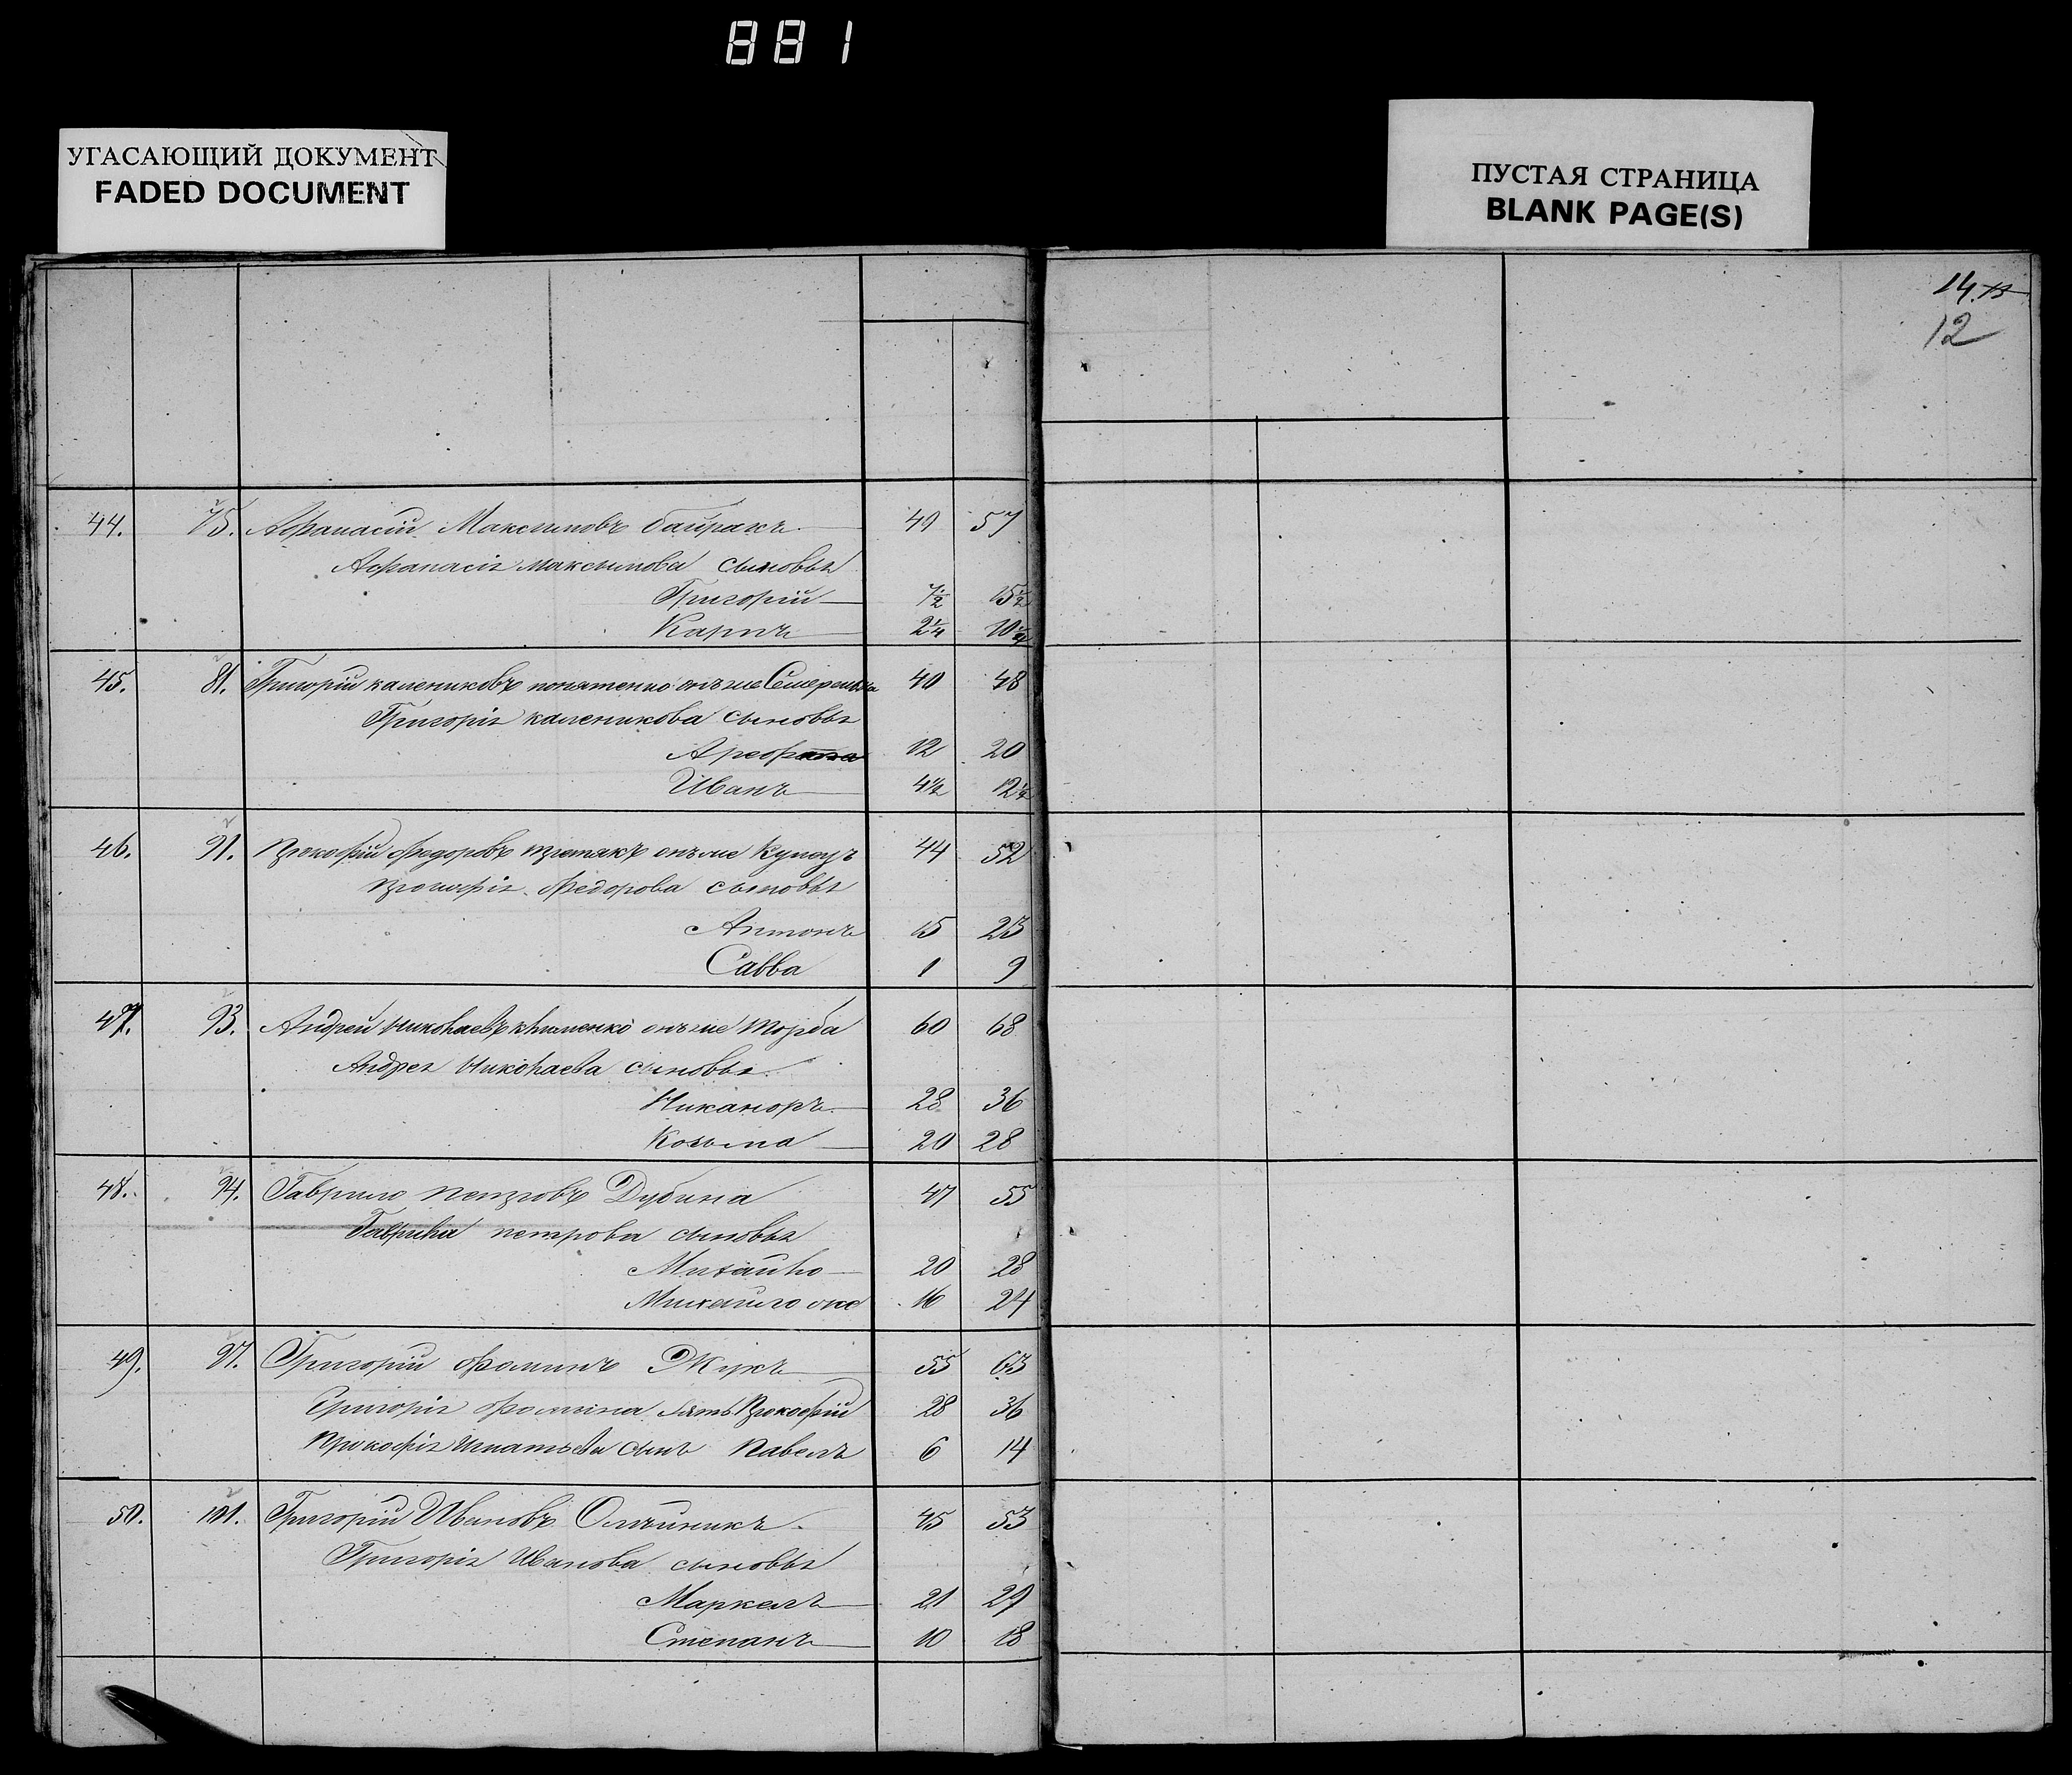 881
УГАСАЮЩИЙ ДОКУМЕНТ
FADED DOCUMENT
ПУСТАЯ СТРАНИЦА
BLANK PAGE(S)
14. 13
12
44. 75. Афанасий Максимовъ байракъ 49 57
Афанасія максимова сыновья
Григорій 7½ 15½
Карпъ 2¼ 10¼
45. 81. Григорій калениковъ онъ же 40 48
Григорія каленикова сыновья
Арефа 12 20
Иванъ 4½ 12½
46. 91. Прокофій федоровъ онъ же Купецъ 44 52
прокофія федорова сыновья
Антонъ 15 23
Савва 1 9
47. 93. Андрей Николаевъ клименко онъ же торба 60 68
Андрея Николаева сыновья
Никаноръ 28 36
Козьма 20 28
48. 94. Гаврило петровъ Дубина 47 55
Гаврила петрова сыновья
Михайло 20 28
Михайло оне 16 24
49. 97. Григорій фоминъ Жукъ 55 63
Григорія фомина зять Прокофій 28 36
Прокофія Игнатьева сынъ Павелъ 6 14
50. 101. Григорій Ивановъ Олейникъ 45 53
Григорія Иванова сыновья
Маркелъ 21 29
Степанъ 10 18